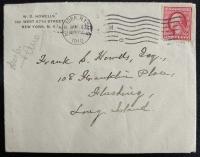 W. D. HOWELLS
130 WEST 57TH STREET
NEW YORK, N. Y.
NEW YORK, N.Y.
1910
Frank S. Howells, Esq.,
108 Franklin Place,
Flushing,
Long Island